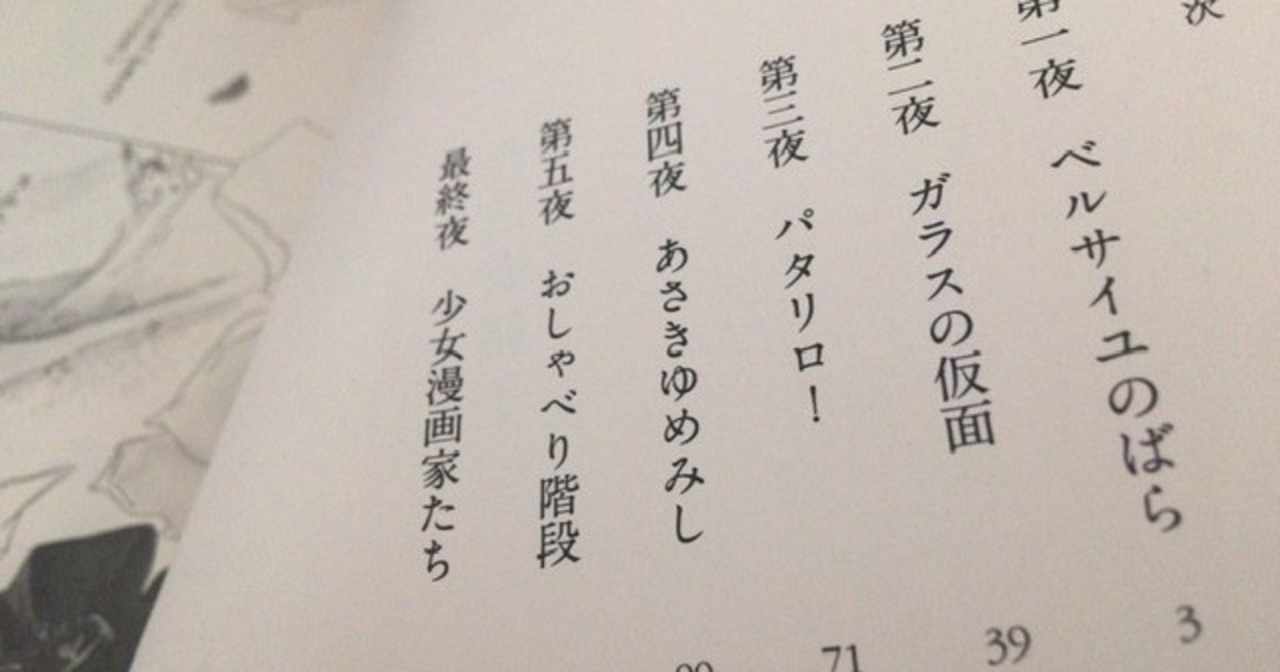 次
第一夜 ベルサイユのばら 3
第二夜 ガラスの仮面 39
第三夜 パタリロ! 71
第四夜 あさきゆめみし
第五夜 おしゃべり階段
最終夜 少女漫画家たち